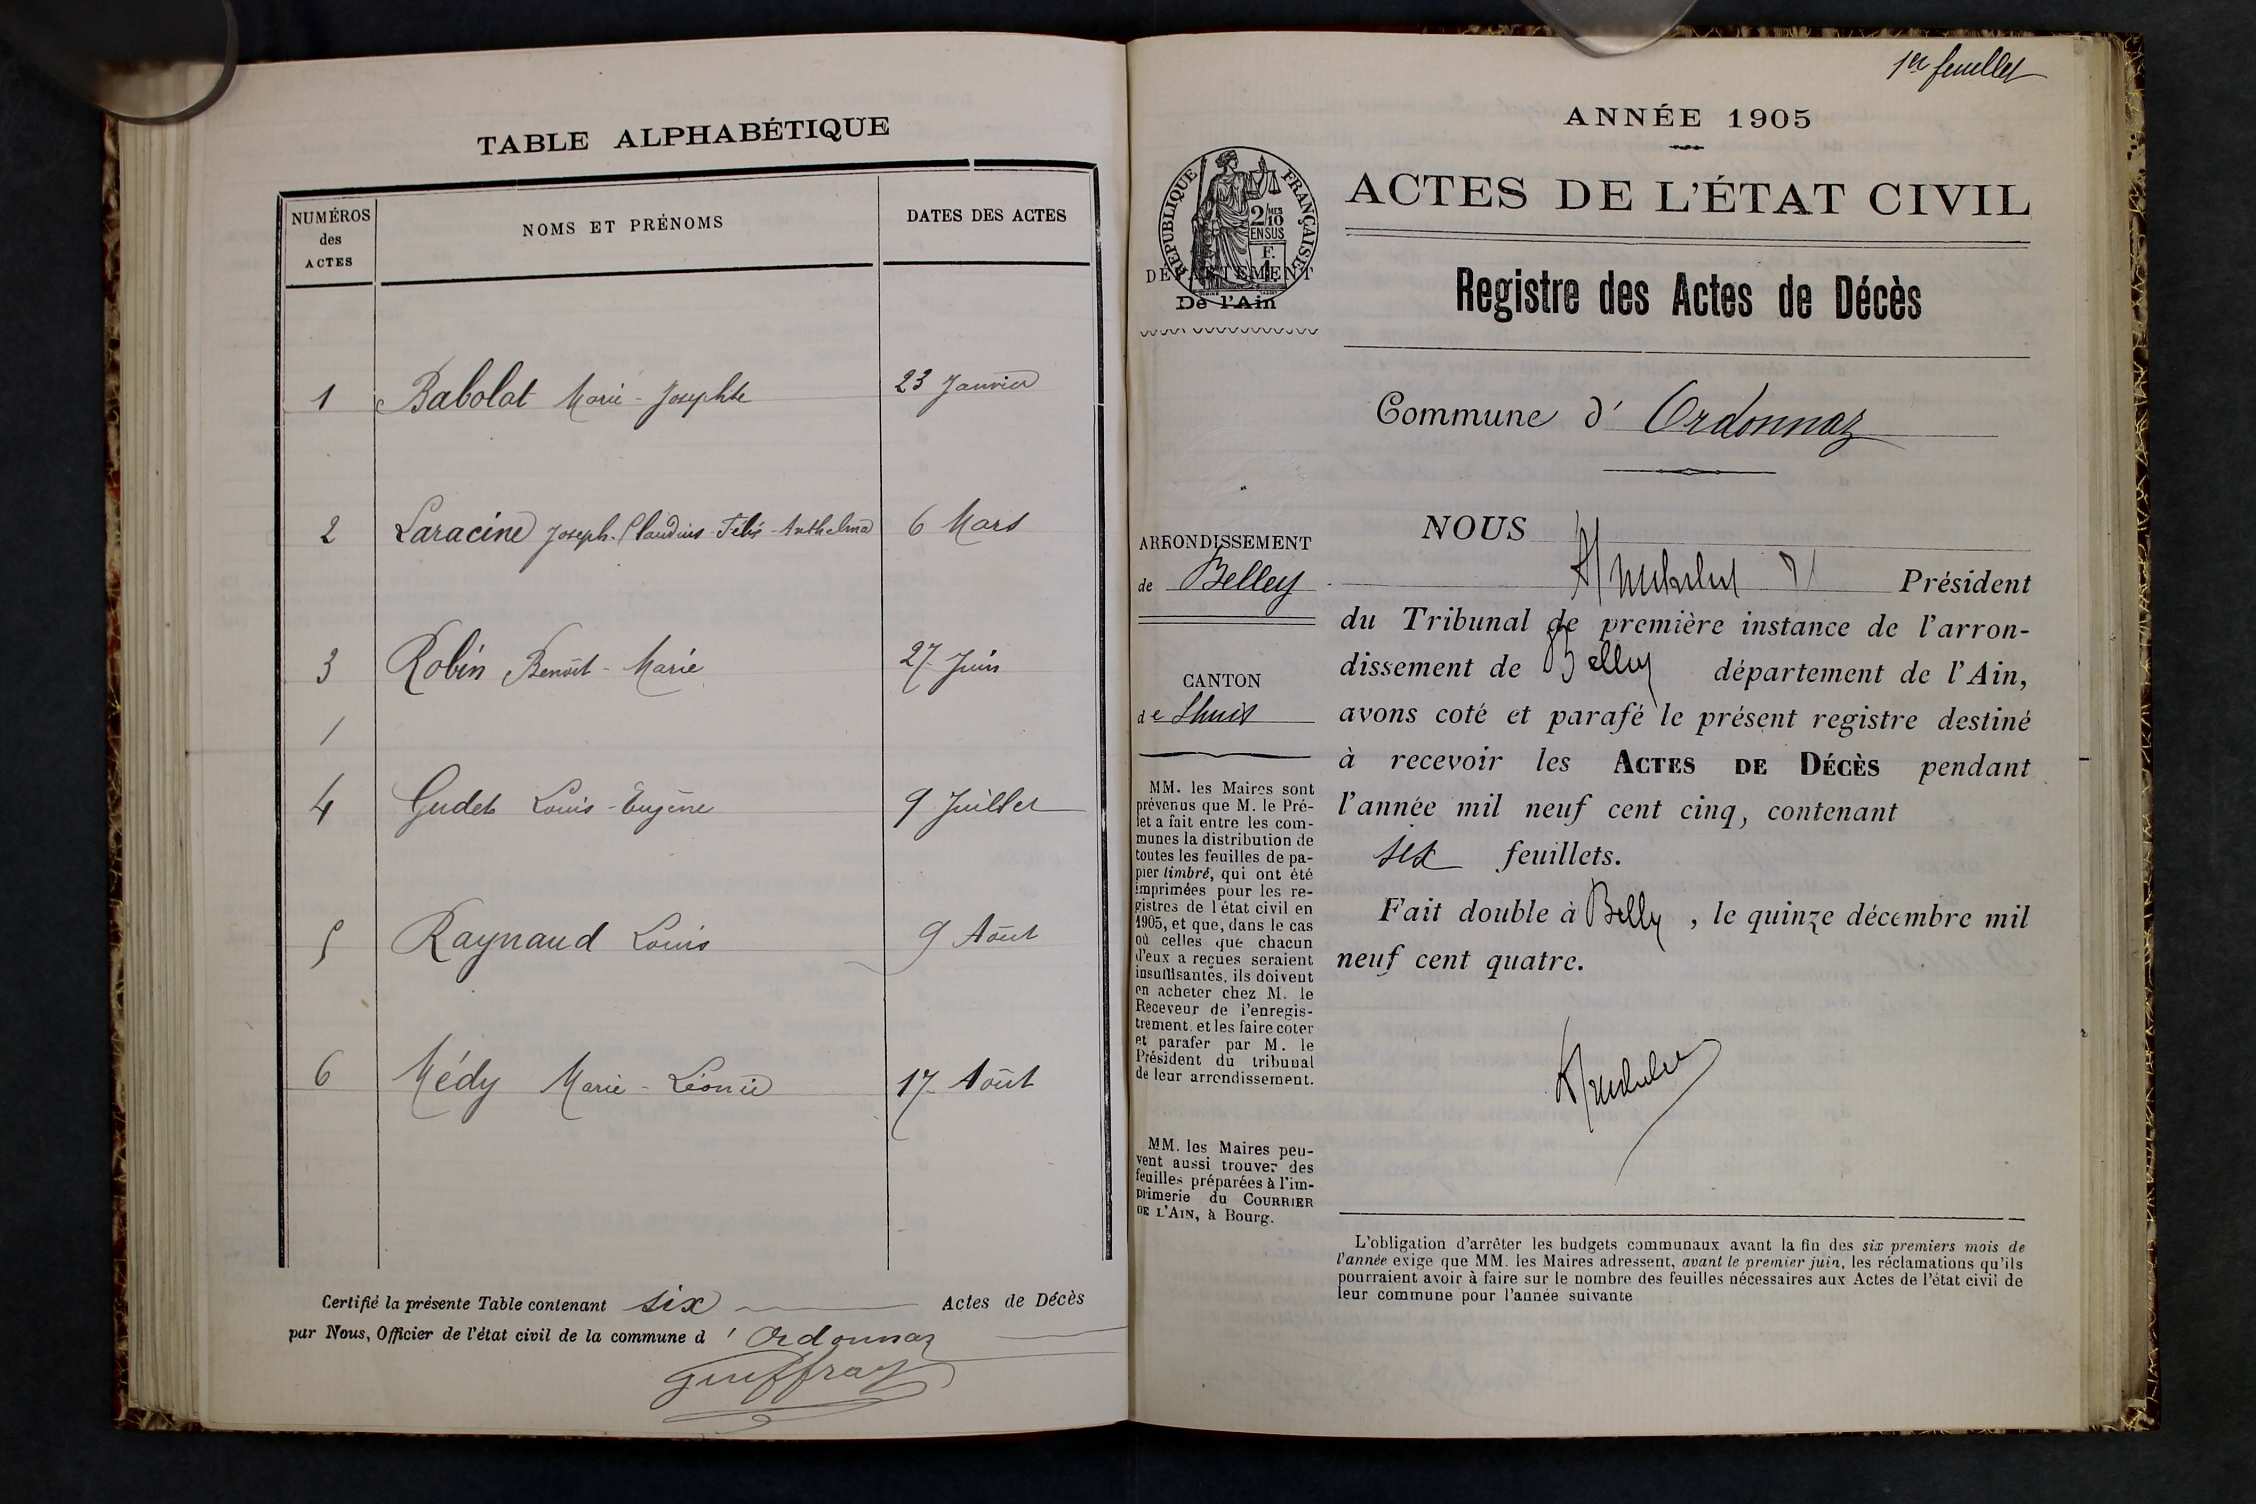 TABLE ALPHABÉTIQUE
NUMÉROS
des
ACTES
NOMS ET PRÉNOMS
DATES DES ACTES
1 Babolat Marie - Josephte 23 Janvier
2 Laracine Joseph-Claudius-Félix-Anthelme 6 Mars
3 Robin Benoît - Marie 27 Juin
4 Gudet Louis-Eugène 9 Juillet
5 Raynaud Louis 9 Août
6 Médy Marie-Léonie 17 Août
Certifié la présente Table contenant six Actes de Décès
par Nous, Officier de l'état civil de la commune d' Ordonnaz
Guffray
1er feuillet
ANNÉE 1905
ACTES DE L'ÉTAT CIVIL
RÉPUBLIQUE FRANÇAISE
2/10
MES
EN SUS
F.
1
DÉPARTEMENT
De l'Ain
Registre des Actes de Décès
Commune d' Ordonnaz
ARRONDISSEMENT
de Belley
CANTON
de Lhuis
MM. les Maires sont
prévenus que M. le Pré-
fet a fait entre les com-
munes la distribution de
toutes les feuilles de pa-
pier timbré, qui ont été
imprimées pour les re-
gistres de l'état civil en
1905, et que, dans le cas
où celles que chacun
d'eux a reçues seraient
insuffisantes, ils doivent
en acheter chez M. le
Receveur de l'enregis-
trement, et les faire coter
et parafer par M. le
Président du tribunal
de leur arrondissement.
MM. les Maires peu-
vent aussi trouver des
feuilles préparées à l'im-
primerie du COURRIER
DE L'AIN, à Bourg.
NOUS
Président
du Tribunal de première instance de l'arron-
dissement de Belley département de l'Ain,
avons coté et parafé le présent registre destiné
à recevoir les ACTES DE DÉCÈS pendant
l'année mil neuf cent cinq, contenant
six feuillets.
Fait double à Belley, le quinze décembre mil
neuf cent quatre.
L'obligation d'arrêter les budgets communaux avant la fin des six premiers mois de
l'année exige que MM. les Maires adressent, avant le premier juin, les réclamations qu'ils
pourraient avoir à faire sur le nombre des feuilles nécessaires aux Actes de l'état civil de
leur commune pour l'année suivante